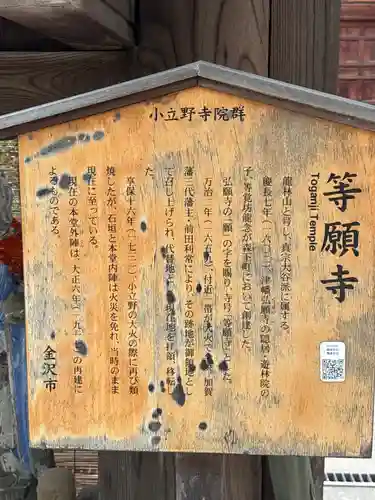 小立野寺院群
等願寺
Toganji Temple
龍林山と号し、真宗大谷派に属する。
慶長七年（一六〇二）、八幡弘願寺の隠居・遊林院の
子、等覚坊龍念が森下町において創建した。
弘願寺の「願」の字を賜り、寺号「等願寺」とした。
万治三年（一六六〇）、付近一帯が大火で、加賀
藩三代藩主、前田利常により、その跡地が御領地とし
て召し上げられ、代替地として現在地を拝領、移転し
た。
享保十六年（一七三一）、小立野の大火の際に再び類
焼したが、石垣と本堂内陣は火災を免れ、当時のまま
現在に至っている。
現在の本堂外陣は、大正六年（一九一七）の再建に
よるものである。
金沢市